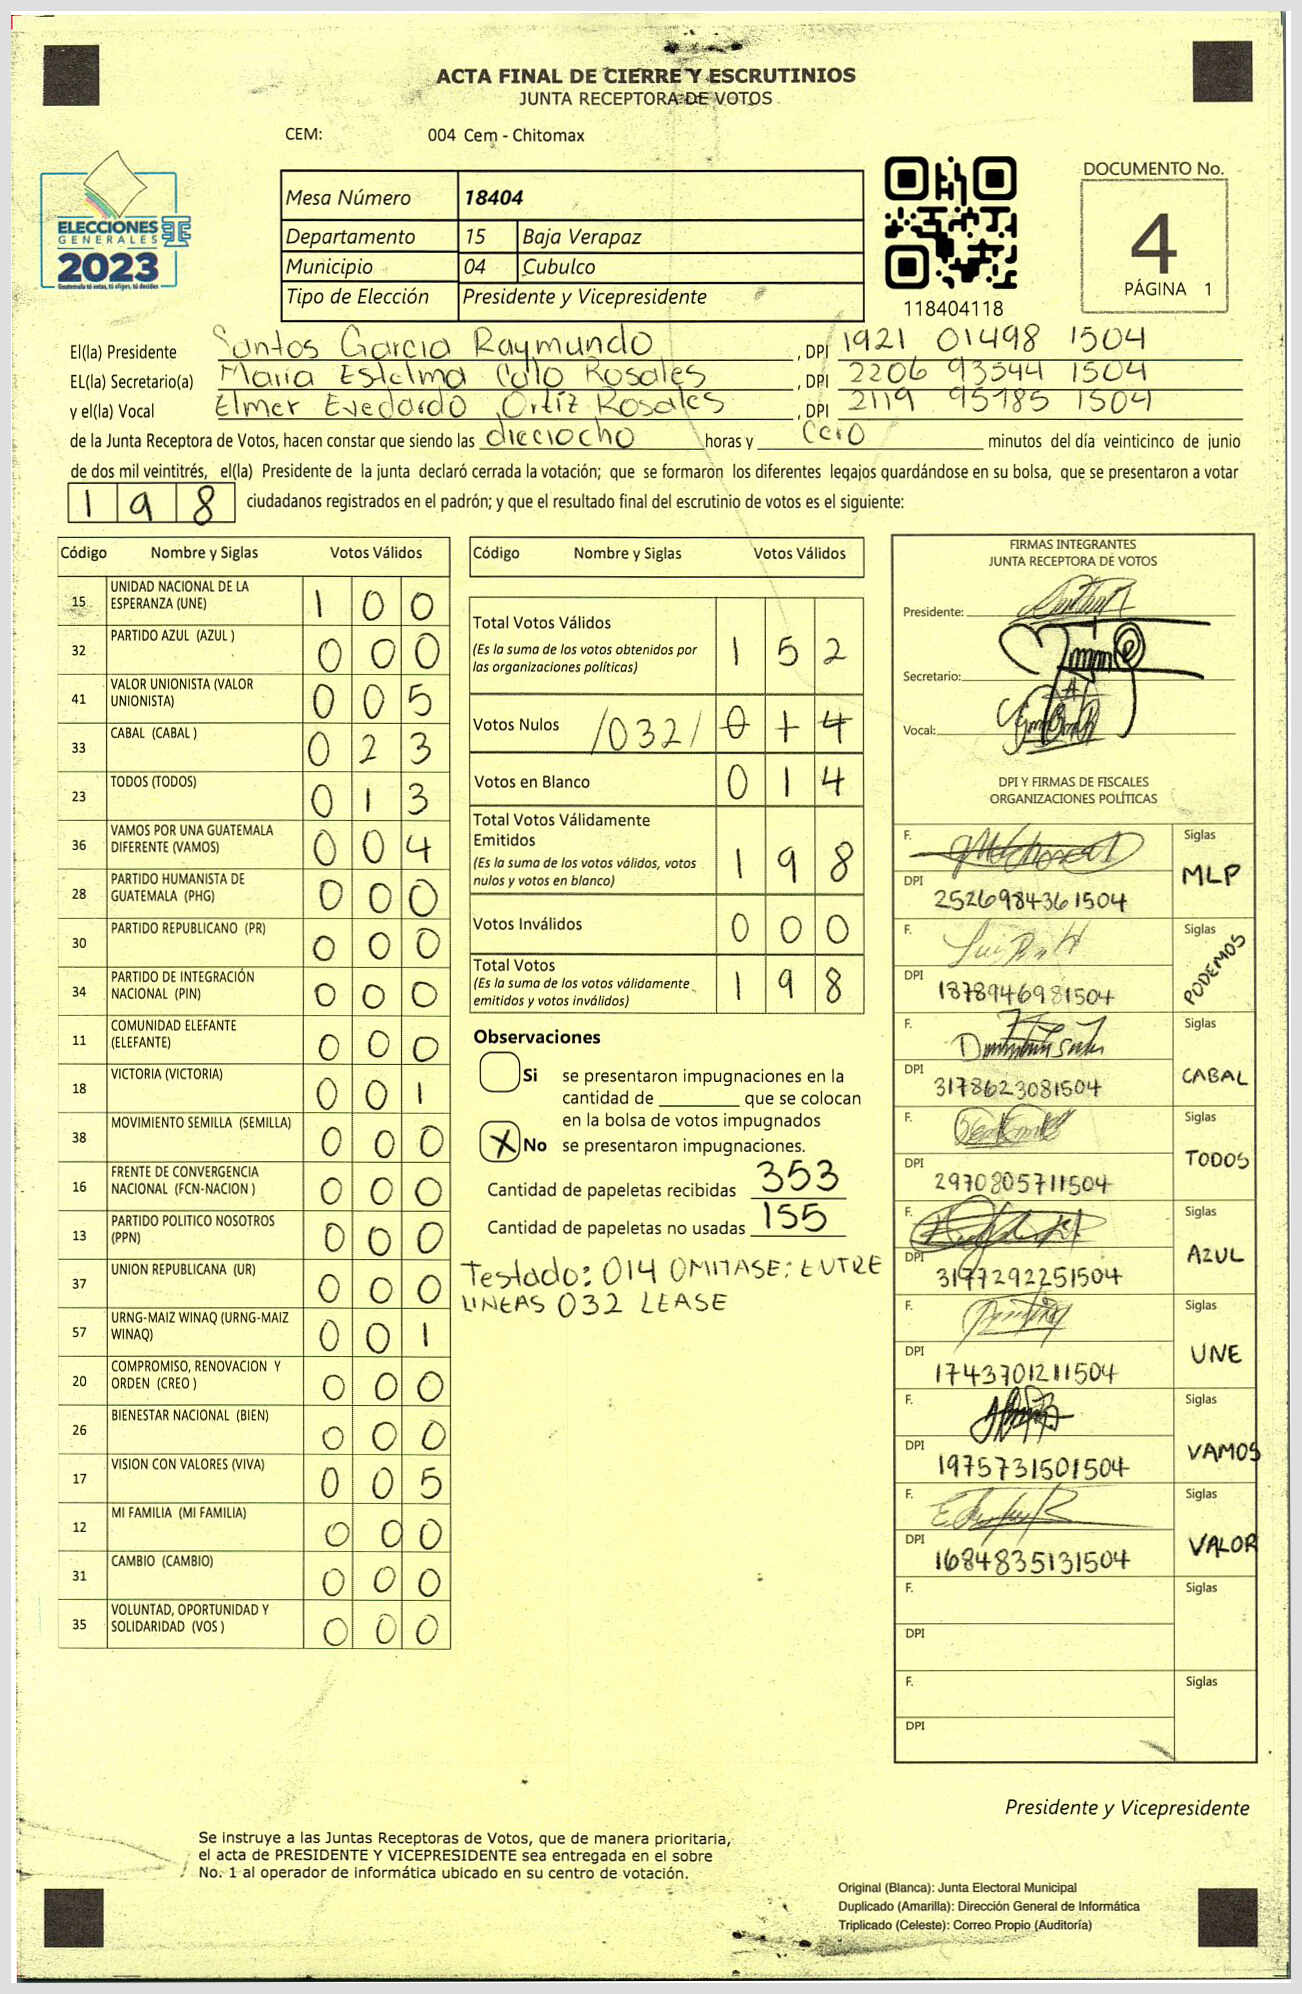 ACTA FINAL DE CIERRE Y ESCRUTINIOS
JUNTA RECEPTORA DE VOTOS
CEM: 004 Cem - Chitomax
ELECCIONES
GENERALES
2023
Guatemala tú votas, tú eliges, tú decides
Mesa Número 18404
Departamento 15 Baja Verapaz
Municipio 04 Cubulco
Tipo de Elección Presidente y Vicepresidente
118404118
DOCUMENTO No.
4
PÁGINA 1
El(la) Presidente Santos Garcia Raymundo, DPI 1921 01498 1504
EL(la) Secretario(a) Maria Estelma Calo Rosales, DPI 2206 93544 1504
y el(la) Vocal Elmer Evedardo Ortiz Rosales, DPI 2119 95185 1504
de la Junta Receptora de Votos, hacen constar que siendo las dieciocho horas y Cero minutos del día veinticinco de junio
de dos mil veintitrés, el(la) Presidente de la junta declaró cerrada la votación; que se formaron los diferentes legajos guardándose en su bolsa, que se presentaron a votar
198 ciudadanos registrados en el padrón; y que el resultado final del escrutinio de votos es el siguiente:
Código Nombre y Siglas Votos Válidos
15 UNIDAD NACIONAL DE LA ESPERANZA (UNE) 1 0 0
32 PARTIDO AZUL (AZUL ) 0 0 0
41 VALOR UNIONISTA (VALOR UNIONISTA) 0 0 5
33 CABAL (CABAL ) 0 2 3
23 TODOS (TODOS) 0 1 3
36 VAMOS POR UNA GUATEMALA DIFERENTE (VAMOS) 0 0 4
28 PARTIDO HUMANISTA DE GUATEMALA (PHG) 0 0 0
30 PARTIDO REPUBLICANO (PR) 0 0 0
34 PARTIDO DE INTEGRACIÓN NACIONAL (PIN) 0 0 0
11 COMUNIDAD ELEFANTE (ELEFANTE) 0 0 0
18 VICTORIA (VICTORIA) 0 0 1
38 MOVIMIENTO SEMILLA (SEMILLA) 0 0 0
16 FRENTE DE CONVERGENCIA NACIONAL (FCN-NACION ) 0 0 0
13 PARTIDO POLITICO NOSOTROS (PPN) 0 0 0
37 UNION REPUBLICANA (UR) 0 0 0
57 URNG-MAIZ WINAQ (URNG-MAIZ WINAQ) 0 0 1
20 COMPROMISO, RENOVACION Y ORDEN (CREO ) 0 0 0
26 BIENESTAR NACIONAL (BIEN) 0 0 0
17 VISION CON VALORES (VIVA) 0 0 5
12 MI FAMILIA (MI FAMILIA) 0 0 0
31 CAMBIO (CAMBIO) 0 0 0
35 VOLUNTAD, OPORTUNIDAD Y SOLIDARIDAD (VOS ) 0 0 0
Código Nombre y Siglas Votos Válidos
Total Votos Válidos 1 5 2
(Es la suma de los votos obtenidos por
las organizaciones políticas)
Votos Nulos /032/ 0 1 4
Votos en Blanco 0 1 4
Total Votos Válidamente
Emitidos 1 9 8
(Es la suma de los votos válidos, votos
nulos y votos en blanco)
Votos Inválidos 0 0 0
Total Votos 1 9 8
(Es la suma de los votos válidamente
emitidos y votos inválidos)
Observaciones
Si se presentaron impugnaciones en la
cantidad de ________ que se colocan
en la bolsa de votos impugnados
X No se presentaron impugnaciones.
Cantidad de papeletas recibidas 353
Cantidad de papeletas no usadas 155
Testado: 014 OMITASE: ENTRE
LINEAS 032 LEASE
FIRMAS INTEGRANTES
JUNTA RECEPTORA DE VOTOS
Presidente:
Secretario:
Vocal:
DPI Y FIRMAS DE FISCALES
ORGANIZACIONES POLÍTICAS
F. Siglas
DPI 2526984361504 MLP
F. Siglas
DPI 1878946981504 PODEMOS
F. Siglas
DPI 3178623081504 CABAL
F. Siglas
DPI 2970805711504 TODOS
F. Siglas
DPI 3197292251504 AZUL
F. Siglas
DPI 1743701211504 UNE
F. Siglas
DPI 1975731501504 VAMOS
F. Siglas
DPI 1684835131504 VALOR
F. Siglas
DPI
F. Siglas
DPI
Presidente y Vicepresidente
Se instruye a las Juntas Receptoras de Votos, que de manera prioritaria,
el acta de PRESIDENTE Y VICEPRESIDENTE sea entregada en el sobre
No. 1 al operador de informática ubicado en su centro de votación.
Original (Blanca): Junta Electoral Municipal
Duplicado (Amarilla): Dirección General de Informática
Triplicado (Celeste): Correo Propio (Auditoría)